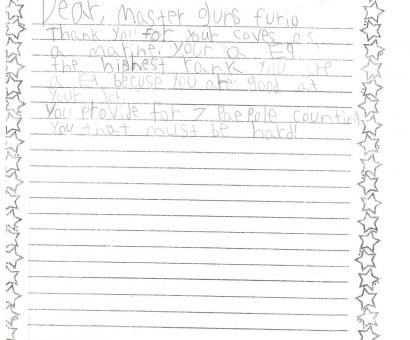 Dear, Master guns furio
Thank you for your
a marine. your a E9
the highest rank you are
a E9 becuse you are good at
your job.
you provide for 7 paepole counting
you that must be hard!